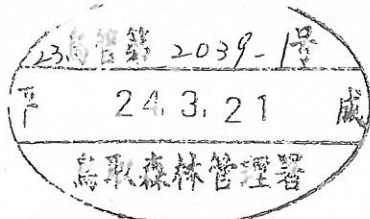 23鳥管第2039-1号
平 24.3.21 成
鳥取森林管理署